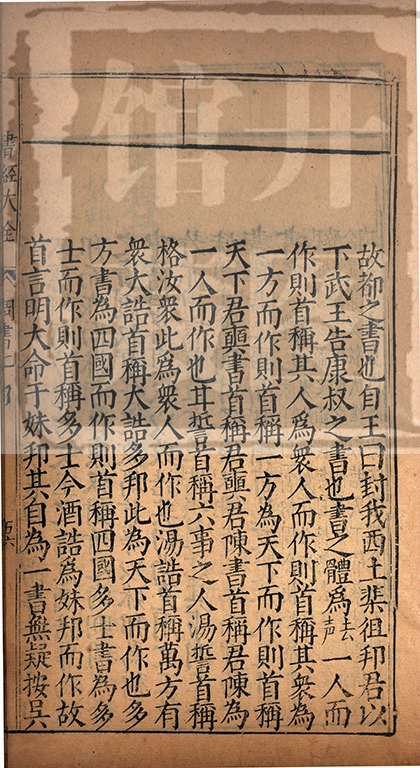 故都之書也自王曰封我西土棐徂邦君以
下武王告康叔之書也書之體為去聲一人而
作則首稱其人為衆人而作則首稱其衆為
一方而作則首稱一方為天下而作則首稱
天下君奭書首稱君奭君陳書首稱君陳為
一人而作也甘誓首稱六事之人湯誓首稱
格汝衆此為衆人而作也湯誥首稱萬方有
衆大誥首稱大誥多邦此為天下而作也多
方書為四國而作則首稱四國多士書為多
士而作則首稱多士今酒誥為妹邦而作故
首言明大命于妹邦其自為一書無疑按吳
書經大全
周書